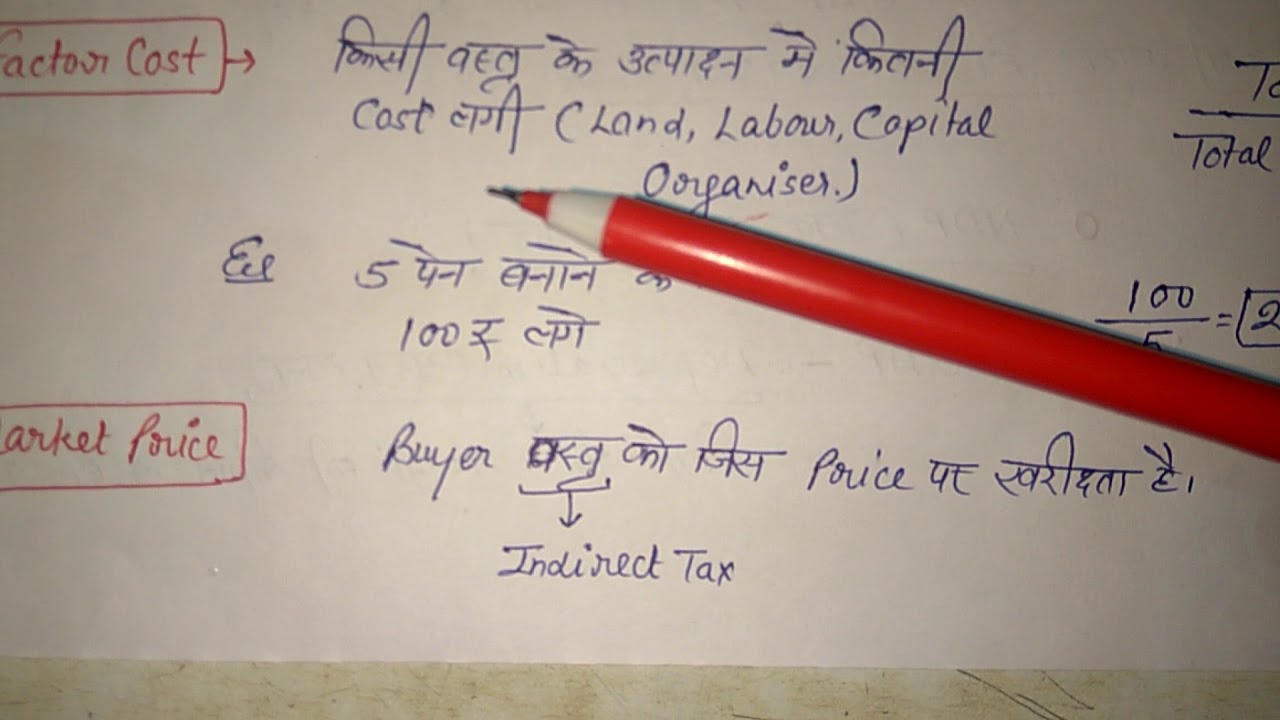 Factour Cost →
किसी वस्तु के उत्पादन मे कितनी
Cost लगी (Land, Labour, Capital
Oorganiser.)
Total
Eg 5 पेन बनाने के
100₹ लगे
100/5 = 2
Market Price
Buyer वस्तु को जिस Price पर खरीदता है।
Indirect Tax